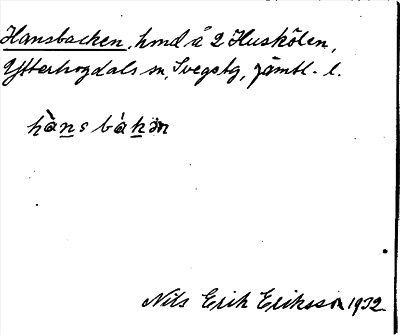 Hansbacken, hmd å 2 Huskölen,
Ytterhogdals sn, Svegs tg, Jämtl. l.
hànsbákän
Nils Erik Eriksson 1932